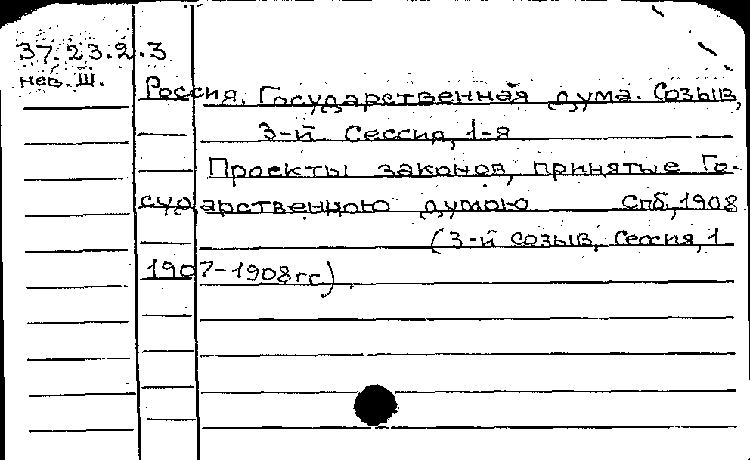 37.23.2.3
нев. Ш.
Россия. Государственная дума. Созыв,
3-й Сессия, 1-я
Проекты законов, принятые Го-
сударственною думою Спб, 1908
(3-й созыв, Сессия, 1
1907-1908гг).